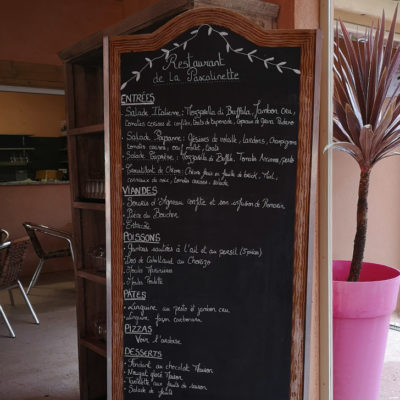 Restaurant
de La Pascalinette
ENTRÉES
Salade Italienne : Mozzarella di Buffala, Jambon cru,
Tomates cerises et confites,
Salade Paysanne : Gésiers de volaille, lardons, Champignons
Tomates cerises, oeuf mollet,
Salade Caprese : Mozzarella di Buffala, Tomates Anciennes, pesto
Croustillant de Chèvre : Chèvre frais en feuille de brick, Miel,
cerneaux de noix, tomates cerises, salade
VIANDES
Souris d'Agneau confite et son infusion de Romarin
Pièce du Boucher
Entrecôte
POISSONS
Gambas sautées à l'ail et au persil (5 pièces)
Dos de Cabillaud au Chorizo
Moules Marinières
Moules Poulette
PÂTES
Linguine au pesto et jambon cru
Linguine façon carbonara
PIZZAS
Voir l'ardoise
DESSERTS
Fondant au chocolat Maison
Nougat glacé Maison
Tartelette aux fruits de saison
Salade de fruits